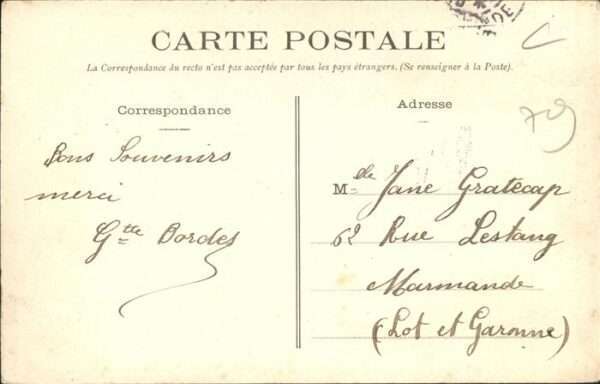 CARTE POSTALE
La Correspondance du recto n'est pas acceptée par tous les pays étrangers. (Se renseigner à la Poste).
Correspondance
Bons Souvenirs
merci
Gtte Bordes
Adresse
Mlle Jane Gratecap
62 Rue Lestang
Marmande
(Lot et Garonne)